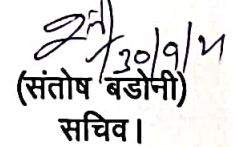 30/9/21
(संतोष बडोनी)
सचिव।